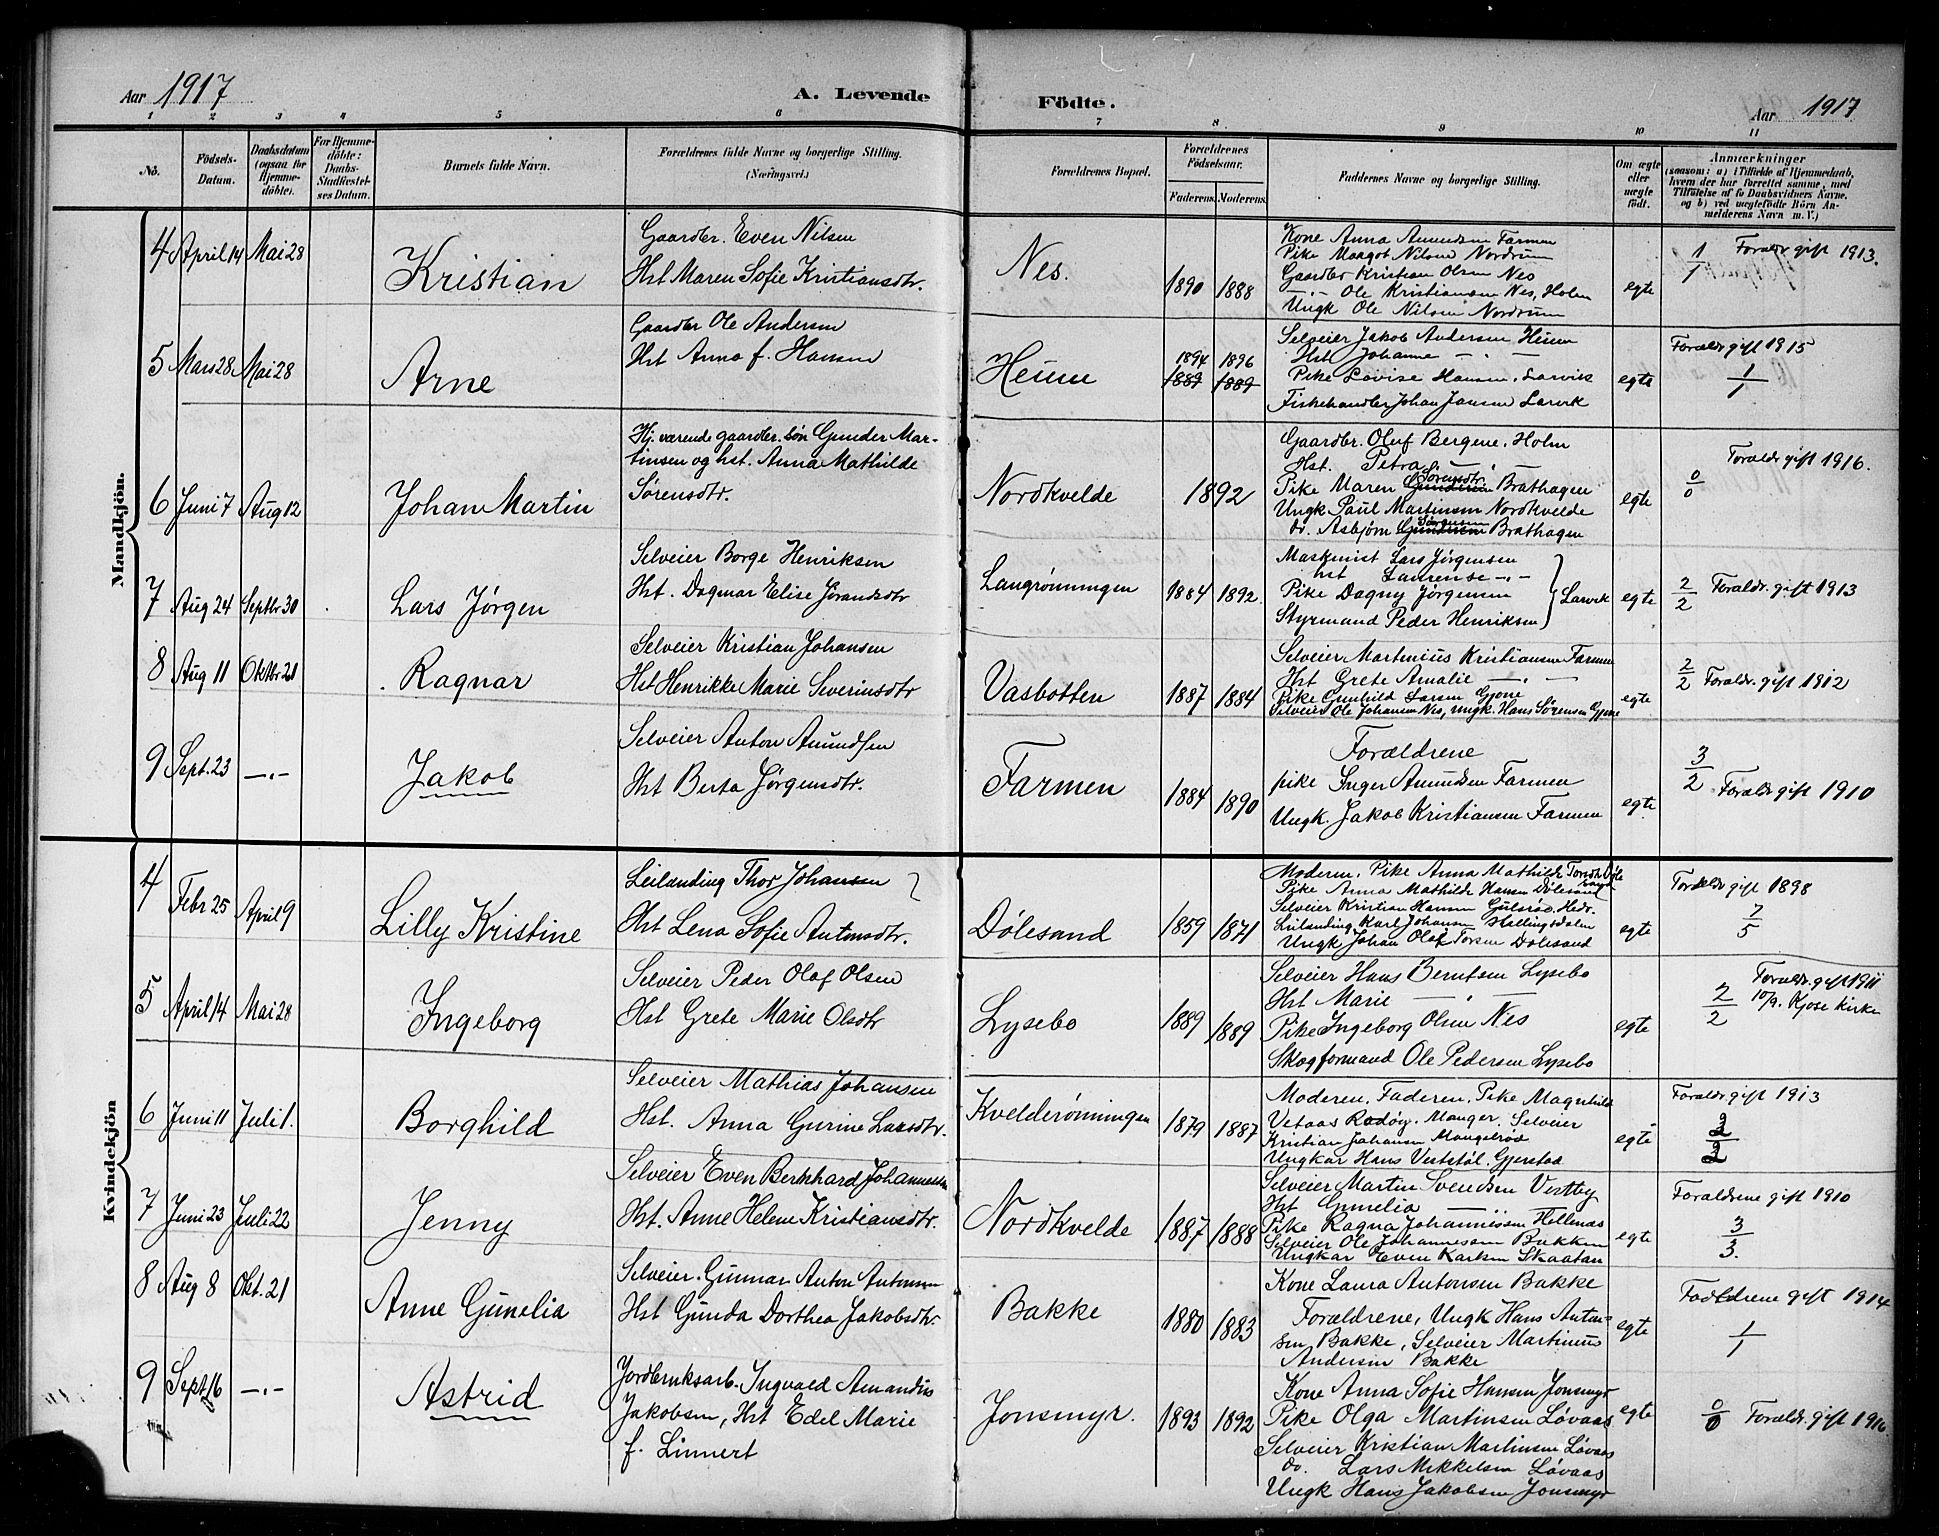 Aar 1917
A. Levende
Födte.
Aar 1917
1 2 3 4 5 6 7 8 9 10 11
No.
Födsels-
Datum.
Daabsdatum
(ogsaa for
Hjemme-
döbte).
For Hjemme-
döbte:
Daabs-
Stadfæstel-
ses Datum.
Barnets fulde Navn.
Forældrenes fulde Navne og borgerlige Stilling.
(Næringsvei.)
Forældrenes Bopæl.
Forældrenes
Födselsaar.
Faderens Moderens
Faddernes Navne og borgerlige Stilling.
Om ægte
eller
uægte
födt.
Anmærkninger
(saasom: a) i Tilfælde af Hjemmedaab,
hvem der har forrettet samme, med
Tilföielse af to Daabsvidners Navne,
og b) ved uægtefödte Börn An-
melderens Navn m. V.)
Mandkjön.
4 April 14 Mai 28
Kristian
Gaardbr. Even Nilsen
Hst Maren Sofie Kristiansdtr.
Nes.
1890 1888
Kone Anna Amundsen Farmen
Pike Maagot Nilsen Nordrum
Gaardbr Kristian Olsen Nes
—"— Ole Kristiansen Nes, Holm
Ungk Ole Nilsen Nordrum
egte
1/1 Foraldr gift 1913.
5 Mars 28 Mai 28
Arne
Gaardbr Ole Andersen
Hst Anna f. Hansen
Heum
1894 1896
1889 1889
Selveier Jakob Andersen Heum
Hst Johanne — " —
Pike Lovise Hansen, Larvik
Fiskehandler Johan Jansen Larvik
egte
Foraldr gift 1915
1/1
6 Juni 7 Aug 12
Johan Martin
Hj. værende gaardbr. søn Gunder Mar-
tinsen og hst. Anna Mathilde
Sørensdtr.
Nordkvelde
1892
Gaardbr. Oluf Bergene, Holm
Hst. Petra —"—
Pike Maren Gundersen Sørensdtr. Brathagen
Ungk Paul Martinsen Nordkvelde
do. Asbjørn Gundersen Sørensen Brathagen
egte
0/0 Foraldr gift 1916.
7 Aug 24 Septbr 30
Lars Jørgen
Selveier Borge Henriksen
Hst. Dagmar Elise Jørandsdtr
Langrønningen
1884 1892.
Maskinist Lars Jørgensen
hst Laurense —"—
Pike Dagny Jørgensen
Styrmand Peder Henriksen
Larvik
egte
2/2 Foraldr. gift 1913
8 Aug 11 Oktbr 21
Ragnar
Selveier Kristian Johansen
Hst Henrikke Marie Severinsdtr
Vasbotten
1887 1884
Selveier Martinius Kristiansen Farmen
Hst Grete Amalie —"—
Pike Gunhild Larsen Gjone
Selveier Ole Johansen Nes, Ungk. Hans Sørensen Gjone
egte
2/2 Foraldr. gift 1912
9 Sept. 23 —"—
Jakob
Selveier Anton Amundsen
Hst Berta Jørgensdtr.
Farmen
1884 1890
Forældrene
pike Inger Amundsen Farmen
Ungk. Jakob Kristiansen Farmen
egte
3/2 Foraldr gift 1910
Kvindekjön
4 Febr 25 April 9
Lilly Kristine
Leilænding Thor Johansen
Hst Lena Sofie Antonsdtr.
Dølesand
1859 1871
Moderen, Pike Anna Mathilde
Pike Anna Mathilde Hansen Dølesand
Selveier Kristian Hansen Gulsrød, Hedr.
Leilænding Karl Johansen Hallingsdalen
Ungk Johan Olaf Torsen Dølesand
egte
Foraldr gift 1898
7/5
5 April 14 Mai 28
Ingeborg
Selveier Peder Olaf Olsen
Hst Grete Marie Olsdtr
Lysebo
1889 1889
Selveier Hans Berntsen Lysebo
Hst Marie — " —
Pike Ingeborg Olsen Nes
Skogformand Ole Pedersen Lysebo
egte
2/2 Foraldr. gift 1911
10/9. Kjose kirke
6 Juni 11 Juli 1.
Borghild
Selveier Mathias Johansen
Hst. Anna Gurine Larsdtr.
Kvelderønningen
1879 1887
Moderen, Faderen, Pike Magnhild
Vetaas Radøy. Manger. Selveier
Kristian Johansen Mangelrød
Ungkar Hans Veststøl. Gjerstad
egte
Foraldr gift 1913
2/2
7 Juni 23 Juli 22
Jenny
Selveier Even Bernhard Johannessen
Hst. Anne Helene Kristiansdtr.
Nordkvelde
1887 1888
Selveier Martin Svendsen Vestby
Hst Gunelia — " —
Pike Ragna Johannessen Hellenæs
Selveier Ole Johannessen Bakken
Ungkar Even Karlsen Skaatan
egte
Foraldrene gift 1910
3/3.
8 Aug 8 Okt. 21
Anne Gunelia
Selveier. Gunnar Anton Antonsen
Hst Gunda Dorthea Jakobsdtr.
Bakke
1880 1883
Kone Laura Antonsen Bakke
Forældrene, Ungk Hans Anton-
sen Bakke, Selveier Martinius
Andersen Bakke
egte
Foældrene gift 1914
1/1
9 Sept. 16 —"—
Astrid
Jordbruksarb. Ingvald Amandus
Jakobsen, Hst Edel Marie
f. Linnert
Jonsmyr.
1893 1892
Kone Anna Sofie Hansen Jonsmyr
Pike Olga Martinsen Løvaas
Selveier Kristian Martinsen Løvaas
do. Lars Mikkelsen Løvaas
Ungk Hans Jakobsen Jonsmyr
egte
0/0 Foraldr. gift 1916.